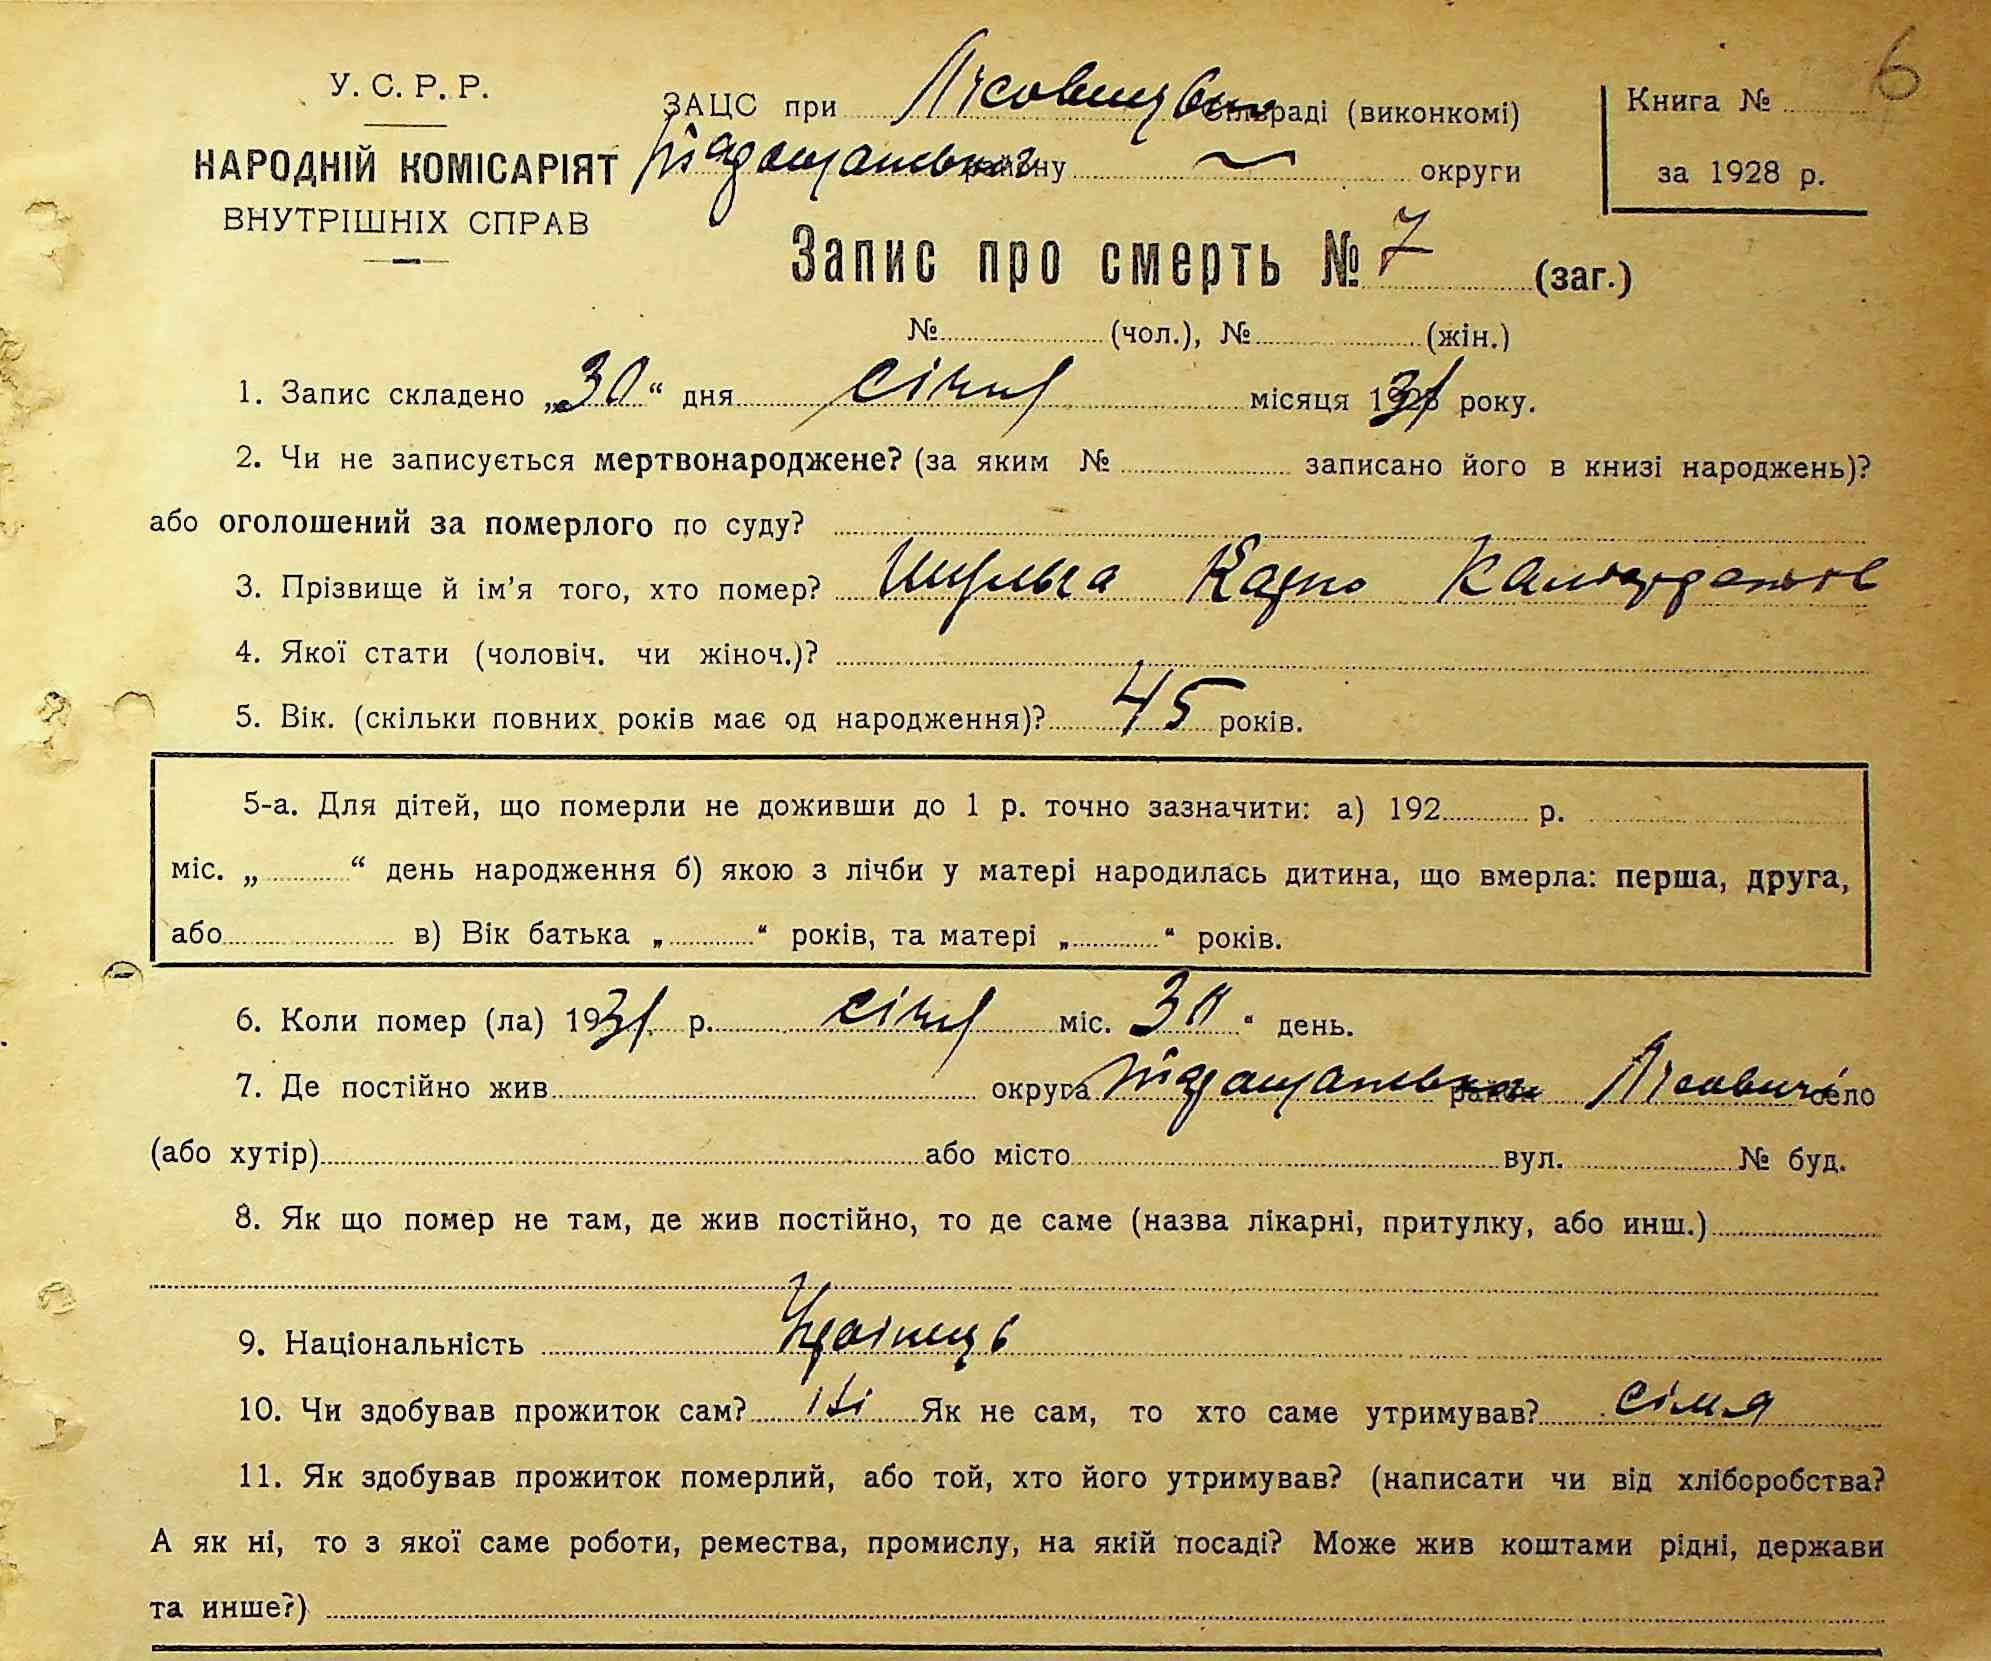 6
У. С. Р. Р.
НАРОДНІЙ КОМІСАРІЯТ
ВНУТРІШНІХ СПРАВ
ЗАЦС при сільраді (виконкомі)
району округи
Книга №
за 1928 р.
Запис про смерть № 7 (заг.)
№ (чол.), № (жін.)
1. Запис складено „30“ дня січня місяця 1931 року.
2. Чи не записується мертвонароджене? (за яким № записано його в книзі народжень)?
або оголошений за померлого по суду?
3. Прізвище й ім’я того, хто помер? Карпо
4. Якої стати (чоловіч. чи жіноч.)?
5. Вік. (скільки повних років має од народження)? 45 років.
5-а. Для дітей, що померли не доживши до 1 р. точно зазначити: а) 192 р.
міс. „ “ день народження б) якою з лічби у матері народилась дитина, що вмерла: перша, друга,
або в) Вік батька „ “ років, та матері „ “ років.
6. Коли помер (ла) 1931 р. січня міс. 30 “ день.
7. Де постійно жив округа район Лісовичі село
(або хутір) або місто вул. № буд.
8. Як що помер не там, де жив постійно, то де саме (назва лікарні, притулку, або инш.)
9. Національність Українець
10. Чи здобував прожиток сам? Ні Як не сам, то хто саме утримував? сімя
11. Як здобував прожиток померлий, або той, хто його утримував? (написати чи від хліборобства?
А як ні, то з якої саме роботи, ремества, промислу, на якій посаді? Може жив коштами рідні, держави
та инше?)